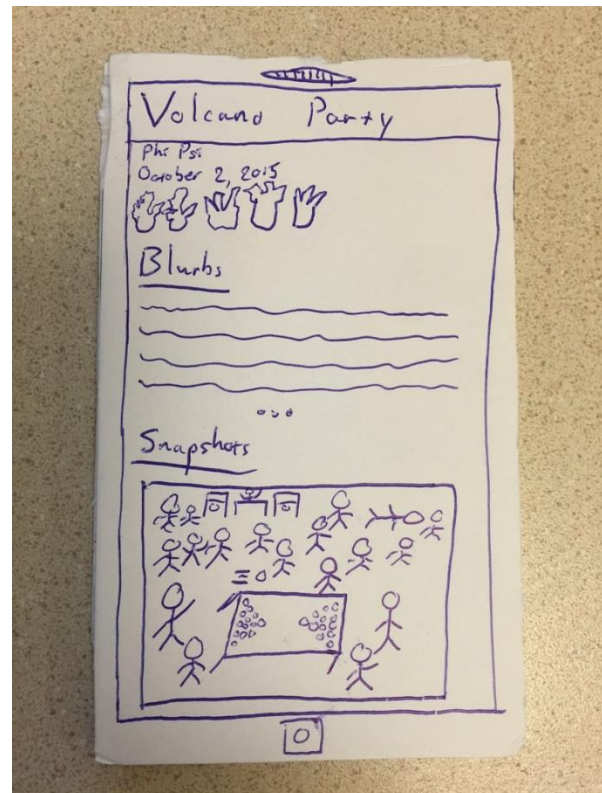 Volcano Party
Phi Psi
October 2, 2015
Blurbs
Snapshots